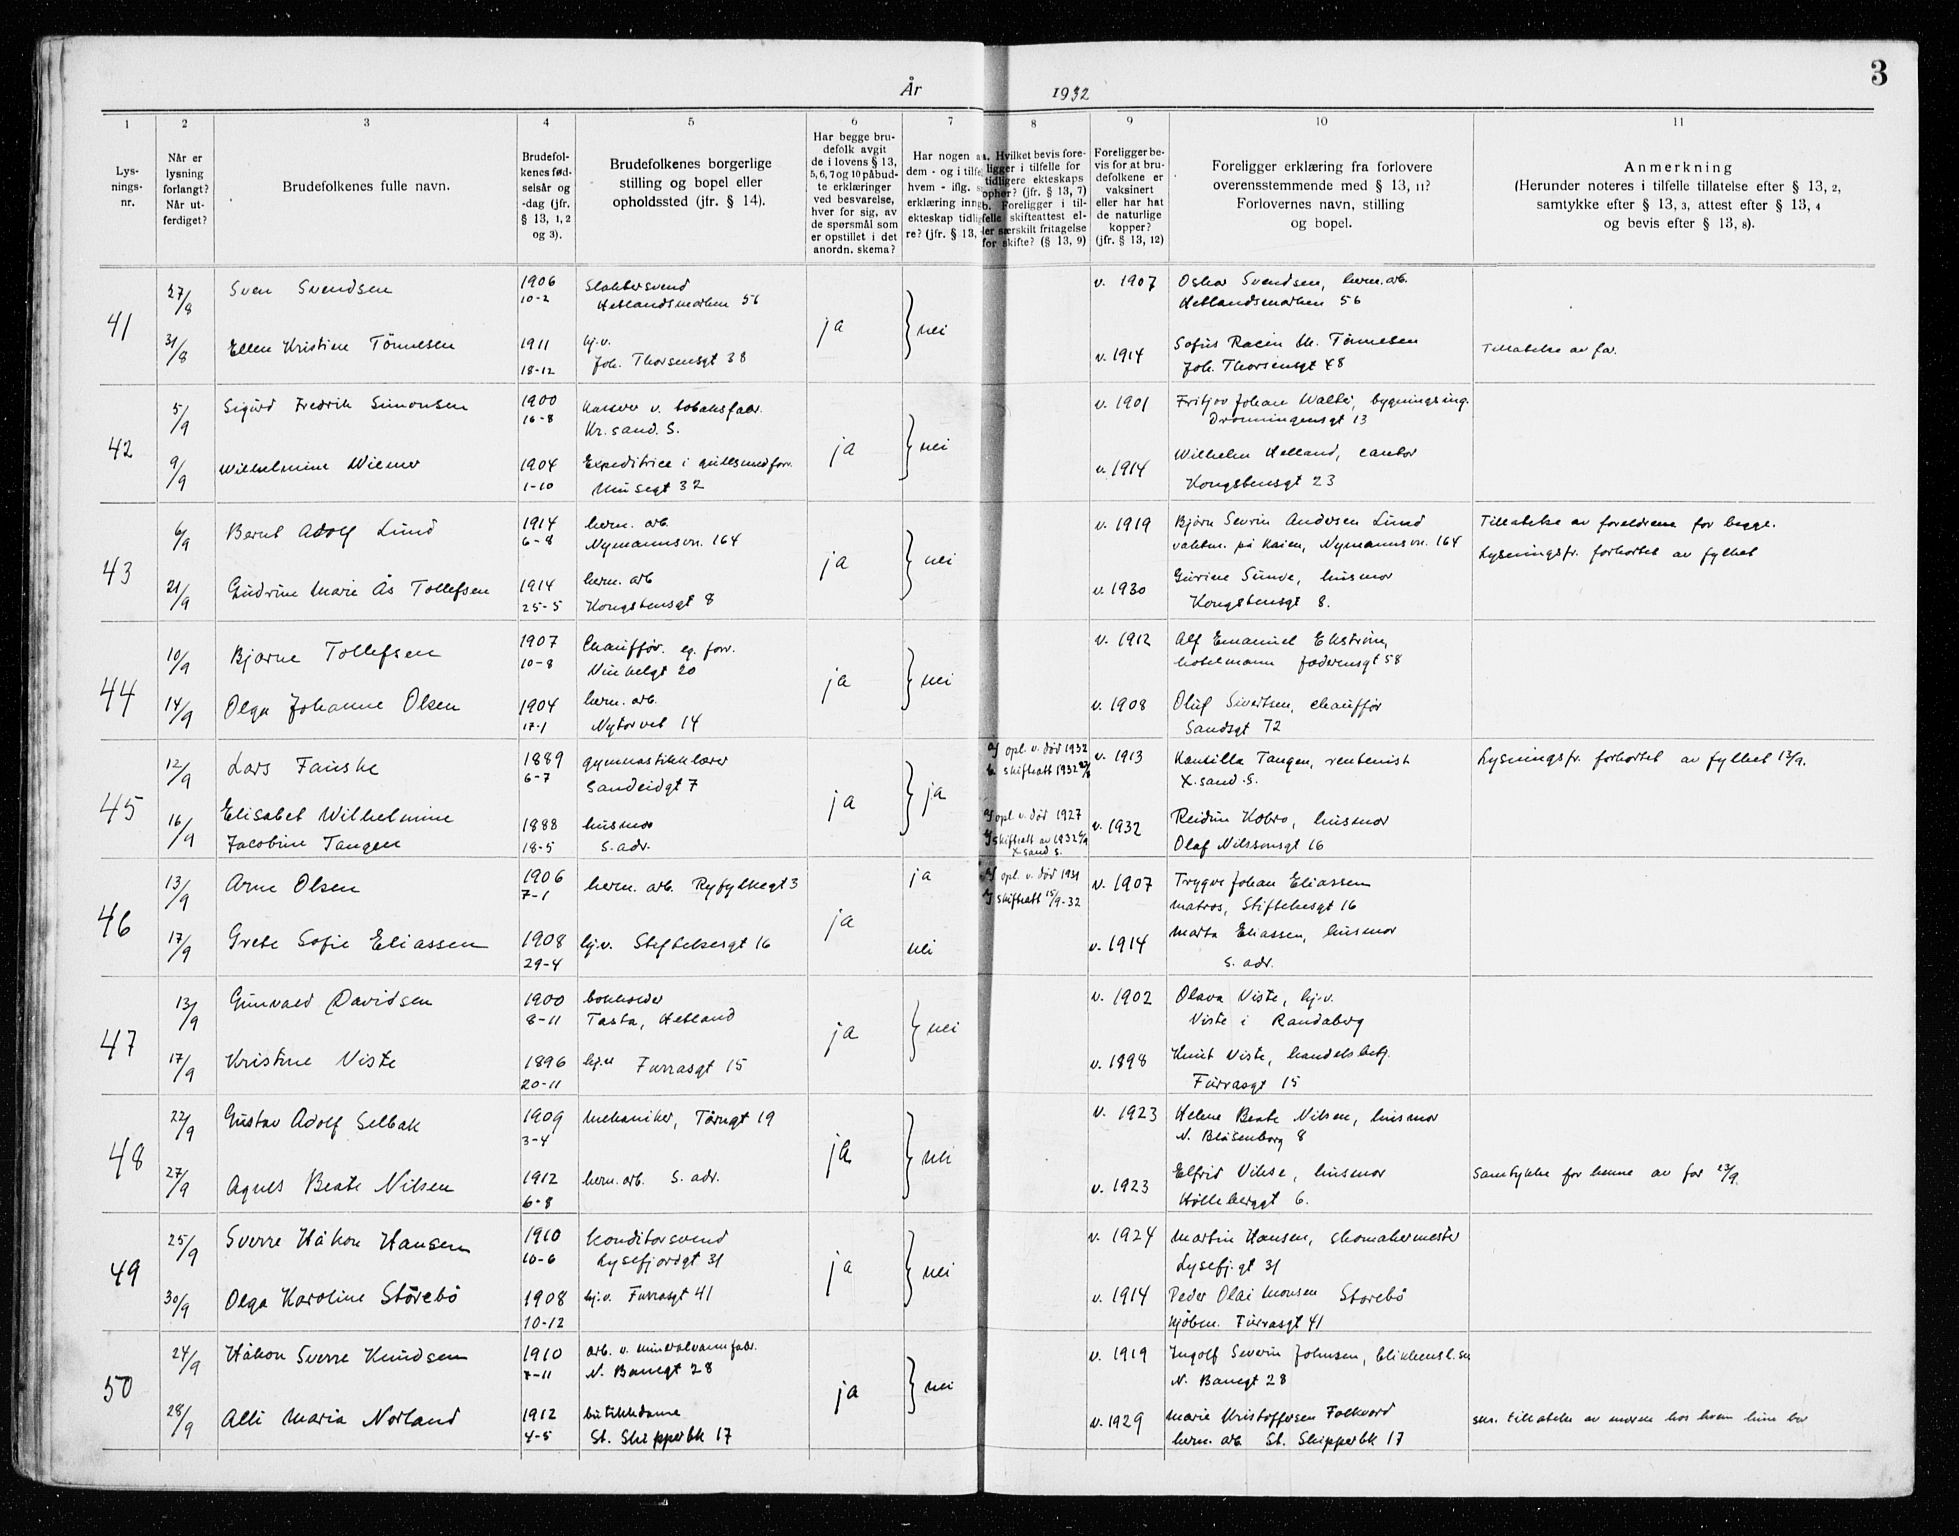 3
År 1932
1 2 3 4 5 6 7 8 9 10 11
Lys-
nings-
nr.
Når er
lysning
forlangt?
Når ut-
ferdiget?
Brudefolkenes fulle navn.
Brudefol-
kenes fød-
selsår og
-dag (jfr.
§ 13, 1, 2
og 3).
Brudefolkenes borgerlige
stilling og bopel eller
opholdssted (jfr. § 14).
Har begge bru-
defolk avgit
de i lovens § 13,
5, 6, 7 og 10 påbud-
te erklæringer
ved besvarelse,
hver for sig, av
de spørsmål som
er opstillet i det
anordn. skema?
Har nogen a
dem - og i tilfe
hvem - iflg. s
erklæring inng
ekteskap tidlig
re? (jfr. § 13,
a. Hvilket bevis fore-
ligger i tilfelle for
tidligere ekteskaps
ophør? (jfr. § 13, 7)
b. Foreligger i til-
felle skifteattest el-
ler særskilt fritagelse
for skifte? (§ 13, 9)
Foreligger be-
vis for at bru-
defolkene er
vaksinert
eller har hat
de naturlige
kopper?
(jfr. § 13, 12)
Foreligger erklæring fra forlovere
overensstemmende med § 13, 11?
Forlovernes navn, stilling
og bopel.
Anmerkning
(Herunder noteres i tilfelle tillatelse efter § 13, 2,
samtykke efter § 13, 3, attest efter § 13, 4
og bevis efter § 13, 8).
41
27/8 Sven Svendsen 1906 Slaktersvend v. 1907 Oskar Svendsen, herm. arb.
10-2 Hetlandsmarken 56 Hetlandsmarken 56
ja } nei
31/8 Ellen Kristine Tönnesen 1911 hj.v. v. 1914 Sofus Racin M. Tönnesen Tillatelse av far.
18-12 Joh. Thorsensgt 38 Joh. Thorsensgt 48
42
5/9 Sigurd Fredrik Simonsen 1900 v. tobaksfabr. v. 1901 Fritjov Johan Waltø, bygningsing.
16-8 Kr.sand. S. Dronningensgt 13
ja } nei
9/9 Wilhelmine Wiemer 1904 Expeditrice i gullsmedforr. v. 1914 Wilhelm Helland, cantor
1-10 Musegt 32 Kongstensgt 23
43
6/9 Bernt Adolf Lund 1914 herm. arb. v. 1919 Bjarn Sevrin Andersen Lund Tillatelse av foreldrene for begge.
6-8 Nymannsvn. 164 vaktm. på Kaien, Nymannsvn. 164 Lysningsfr. forkortet av fylket
ja } nei
21/9 Gudrun Marie Ås Tollefsen 1914 herm. arb v. 1930 Gurine Sunde, husmor
25-5 Kongstensgt 8 Kongstensgt 8.
44
10/9 Bjarne Tollefsen 1907 Chauffør. eg. forr. v. 1912 Alf Emanuel Ekström,
10-8 Vinkelgt 20 hotelmann Jæderensgt 58
ja } nei
14/9 Olga Johanne Olsen 1904 herm. arb. v. 1908 Oluf Sivertsen, chauffør
17-1 Nytorvet 14 Sandsgt 72
45
12/9 Lars Fauske 1889 gymnastikklærer a) opl. v. død 1932 v. 1913 Kamilla Tangen, rentenist Lysningsfr. forkortet av fylket 13/9.
6-7 Sandeidgt 7 b skifteatt 1932 X.sand. S.
ja } ja
16/9 Elisabet Wilhelmine a) opl. v. død 1927 Reidun Kobro, husmor
Jacobine Tangen 1888 husmor b) skifteatt av 1932 v. 1932 Olaf Nilssonsgt 16
18-5 s. adr. X sand S.
46
13/9 Arne Olsen 1906 herm. arb. Ryfylkegt 3 ja a) opl. v. død 1931 v. 1907 Trygve Johan Eliassen
7-1 b) skifteatt 15/9-32 matros, Stiftelsesgt 16
ja
17/9 Grete Sofie Eliassen 1908 hj.v. Stiftelsesgt 16 nei v. 1914 Marta Eliassen, husmor
29-4 S. adr.
47
13/9 Gunvald Davidsen 1900 bokholder v. 1902 Olava Viste, hj.v.
8-11 Tasta, Hetland Viste i Randaberg
ja } nei
17/9 Kristine Viste 1896 hj.v. Furrasgt 15 v. 1898 Knut Viste, handelsbetj.
20-11 Furrasgt 15
48
22/9 Gustav Adolf Selbak 1909 mekaniker, Tårngt 19 v. 1923 Helene Beate Nilsen, husmor
3-4 N. Blåsenborg 8
ja } nei
27/9 Agnes Beate Nilsen 1912 herm. arb. S. adr. v. 1923 Elfrid Vikse, husmor Samtykke for henne av far 23/9.
6-8 Hölleberggt 6.
49
25/9 Sverre Håkon Hansen 1910 konditorsvend v. 1924 Martin Hansen, skomakermester
10-6 Lysefjordgt 31 Lysefj.gt 31
ja } nei
30/9 Olga Karoline Störebö 1908 hj.v. Furrasgt 41 v. 1914 Peder Olai Monsen Storebö
10-12 kjøbm. Furrasgt 41
50
24/9 Håkon Sverre Knudsen 1910 arb. v. mineralvannfabr. v. 1919 Ingolf Severin Johnsen, blikkensl.sv
7-11 N. Banegt 28 N. Banegt 28
ja } nei
28/9 Alli Maria Norland 1912 butikkdame v. 1929 Marie Kristoffersen Folkvord skr. tillatelse av moren hos hvem hun bor
4-5 St. Skipperbk 17 herm. arb. St. Skipperbk 17